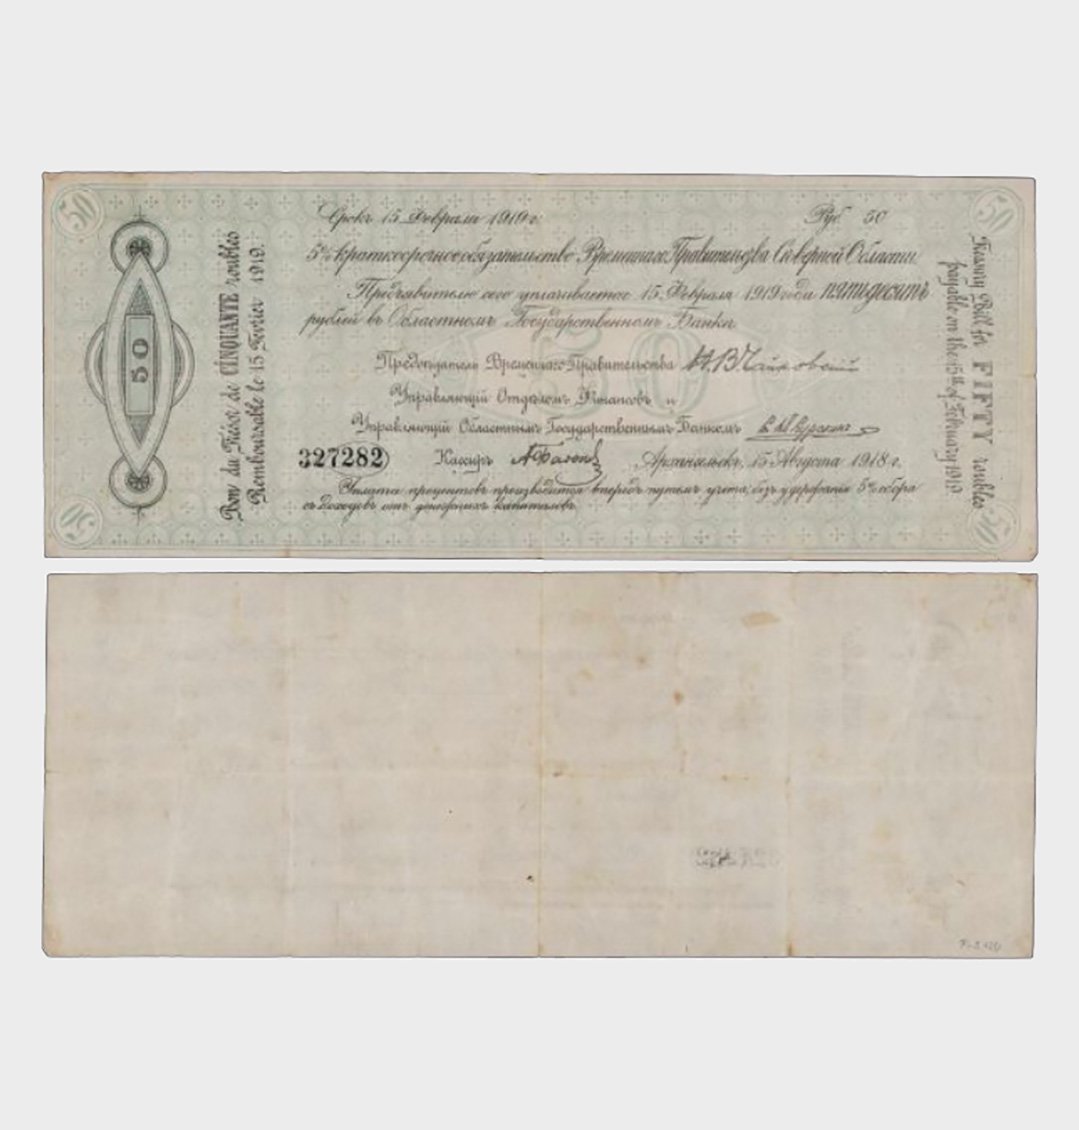 50
50
Срокъ 15 Февраля 1919 г. Руб 50
5% краткосрочное обязательство Временнаго Правительства Сѣверной Области.
Предъявителю сего уплачивается 15 Февраля 1919 года пятьдесятъ
рублей въ Областномъ Государственномъ Банкѣ.
Предсѣдатель Временнаго Правительства Н. В. Чайковскій
Управляющій Отдѣломъ Финансовъ и
Управляющій Областнымъ Государственнымъ Банкомъ
327282 Кассиръ Архангельскъ, 15 Августа 1918 г.
Уплата процентовъ производится впередъ путемъ учета, безъ удержанія 5% сбора
съ доходовъ отъ денежныхъ капиталовъ.
Bon du Trésor de CINQUANTE roubles
Remboursable le 15 Février 1919.
50
50
Treasury Bill for FIFTY roubles
payable on the 15th of February 1919
50
50